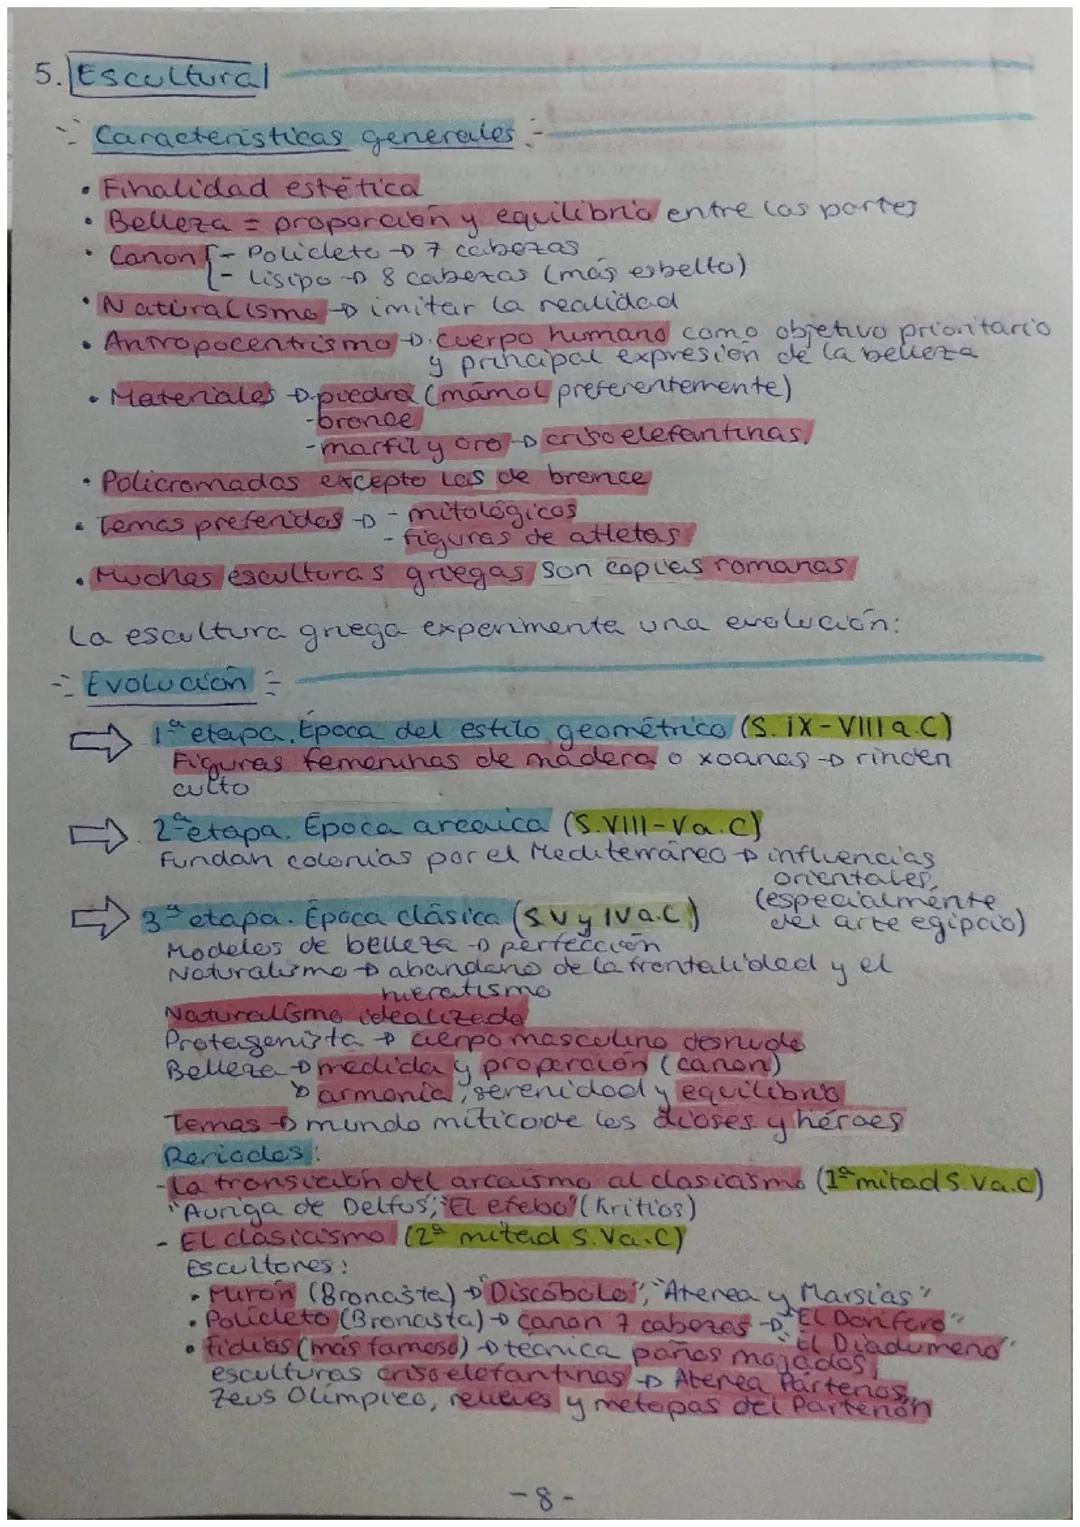 5. Escultura
Características generales
• Finalidad estética
• Belleza = proporción y equilibrio entre las partes
• Canon - Policleto → 7 cabezas
- Lisipo → 8 cabezas (más esbelto)
• Naturalismo → imitar la realidad
• Antropocentrismo → cuerpo humano como objetivo prioritario
y principal expresión de la belleza
• Materiales → piedra (mármol preferentemente)
- bronce
- marfil y oro → crisoelefantinas.
• Policromadas excepto las de bronce
• Temas preferidos → - mitológicos
- figuras de atletas
• Muchas esculturas griegas son copias romanas
La escultura griega experimenta una evolución:
Evolución
⇒ 1ª etapa. Época del estilo geométrico (S. IX - VIII a.C)
Figuras femeninas de madera o xoanas → rinden
culto
⇒ 2ª etapa. Época arcaica (S. VIII - V a.C)
Fundan colonias por el Mediterráneo → influencias
orientales,
(especialmente
del arte egipcio)
⇒ 3ª etapa. Época clásica (S V y IV a.C)
Modelos de belleza → perfección
Naturalismo → abandono de la frontalidad y el
hieratismo
Naturalismo idealizado
Protagonista → cuerpo masculino desnudo
Belleza → medida y proporción (canon)
→ armonía, serenidad y equilibrio
Temas → mundo mítico de los dioses y héroes
Periodos:
- La transición del arcaísmo al clasicismo (1ª mitad S. V a.C)
"Auriga de Delfos", "El efebo" (Kritios)
- El clasicismo (2ª mitad S. V a.C)
Escultores:
• Mirón (Broncista) → "Discóbolo", "Atenea y Marsias"
• Policleto (Broncista) → canon 7 cabezas → "El Doríforo"
"El Diadumeno"
• Fidias (más famoso) → técnica paños mojados,
esculturas crisoelefantinas → Atenea Partenos,
Zeus Olímpico, relieves y metopas del Partenón
- 8 -